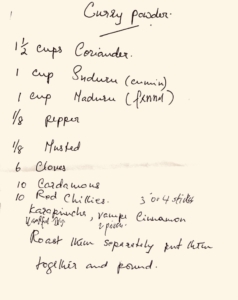 Curry powder.
1 1/2 cups Coriander.
1 cup Suduru (cumin)
1 cup Maduru (fennel)
1/8 pepper
1/8 Mustard
6 Cloves
10 Cardamons
10 Red Chillies. 3 or 4 sticks
Karapincha, rampe Cinnamon
Roast them separately put them
together and pound.